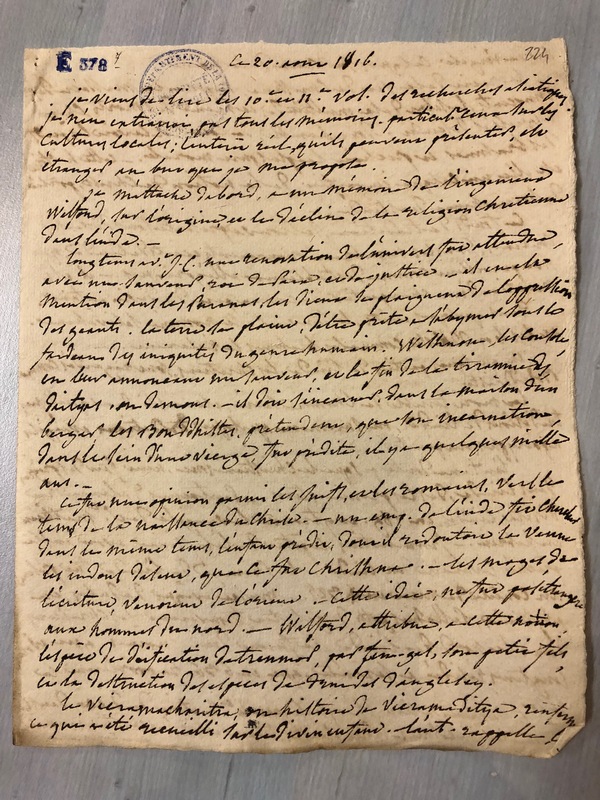 E 378 7
DÉPARTEMENT DE LA
224
Ce 20. aout 1816.
je viens de lire les 10e et 11e vol. des recherches asiatiques.
je n'en extrairai pas tous les mémoires. particul. ceux sur les
cultures locales; l'intérêt réel, qu'ils peuvent présenter, est
étranger au but que je me propose.
je m'attache d'abord, a un mémoire de l'ingenieur
Wilford, sur l'origine, et le déclin de la religion Chrétienne
dans l'inde. —
longtems av. J.C. une renovation de l'univers fut attendue,
avec un sauveur, roi de paix, et de justice — il en est
mention dans les Puranas. les Dieux se plaignent de l'oppression
des geants. la terre se plaint, d'être prête a s'abymer sous le
fardeau des iniquités du genre humain. Wishnou, les console
en leur annonceant un sauveur, et la fin de la tirannie des
daityas, ou demons. — il doit s'incarner, dans la maison d'un
berger. les Bouddhistes, prétendent, que son incarnation
dans le sein d'une vierge, fut prédite, il y a quelques mille
ans. —
Ce fut une opinion parmi les juifs, et les romains, vers le
tems de la naissance du Christ. — un emp. de l'inde fit chercher
dans le même tems, l'enfant prédit, dont il redoutait la venue
les indous disent, que ce fut Chrishna. — les mages de
l'écriture venoient de l'orient. — Cette idée, ne fut pas étrangère
aux hommes du nord. — Wilford, attribue, a cette notion
l'espèce de déification de trenmor, par fin-gal, son petit fils,
et la destruction des espèces de druides d'anglesey.
le vicramacharitra, ou histoire de vicramaditya, renferme
ce qui a été recueilli sur le divin enfant. l'aut. rappelle